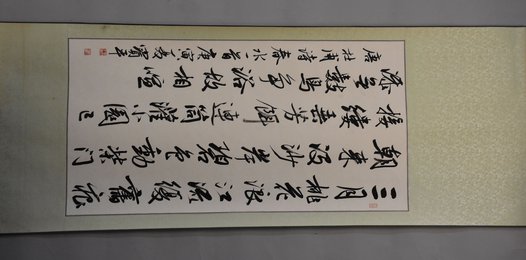 三月桃花浪江流復舊痕
朝来没沙尾碧色動柴門
接縷垂芳餌連筒灌小園已
添無數鳥爭浴故相喧
唐杜甫詩春水一首庚寅夏